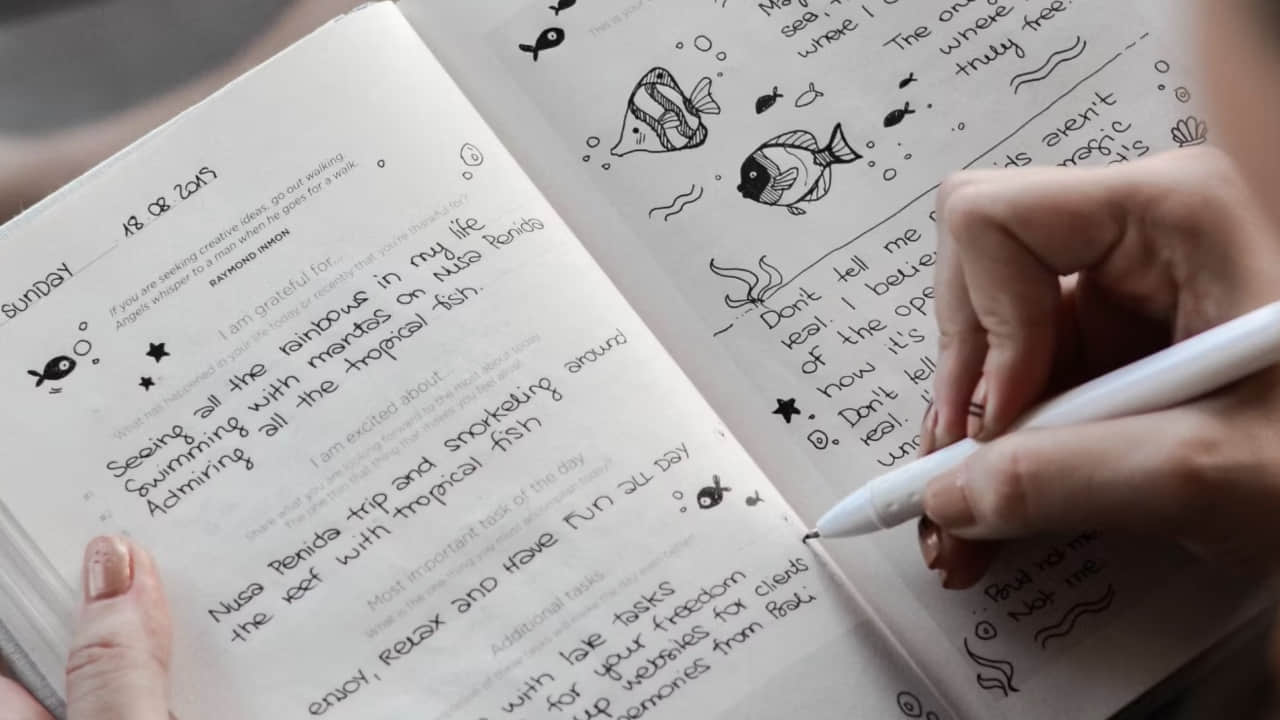 SUNDAY 18.08.2019
If you are seeking creative ideas, go out walking
Angels whisper to a man when he goes for a walk.
RAYMOND INMON
I am grateful for...
What has happened in your life today or recently that you're thankful for?
Seeing all the rainbows in my life
Swimming with mantas on Nusa Penida
Admiring all the tropical fish.
I am excited about...
Share what you are looking forward to the most about today
the one thing that makes you feel
Nusa Penida trip and snorkeling around
the reef with tropical fish
Most important task of the day
What is the one thing you must accomplish today?
enjoy, Relax and Have Fun all Day
Additional tasks
will make the day even better
with late tasks
for your freedom
up websites for clients
memories from Bali
This is your
sea,
where I
The
where
truly free.
aren't
magic
Don't tell me
real. I
of the
how it's
Don't tell
real.
But not me.
Not me.